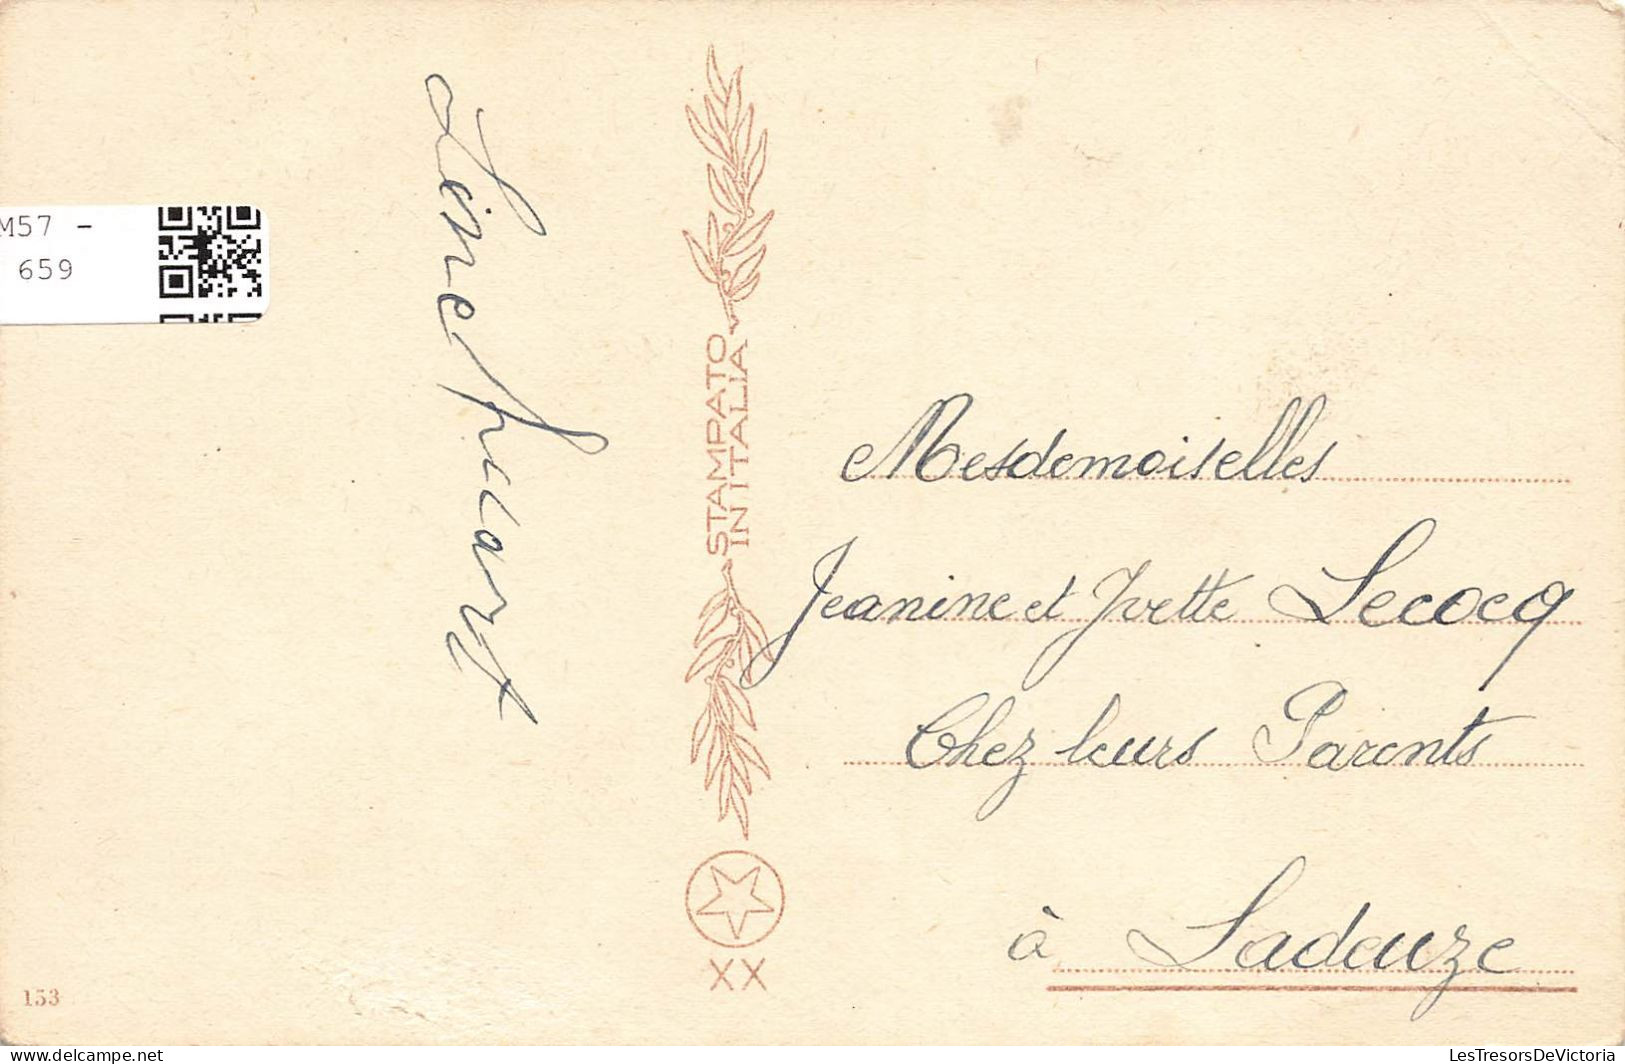 M57 -
659
STAMPATO
IN ITALIA
XX
153
Mesdemoiselles
Jeanine et Yvette Lecocq
Chez leurs Parents
à Ladeuze
delcampe.net
LesTresorsDeVictoria